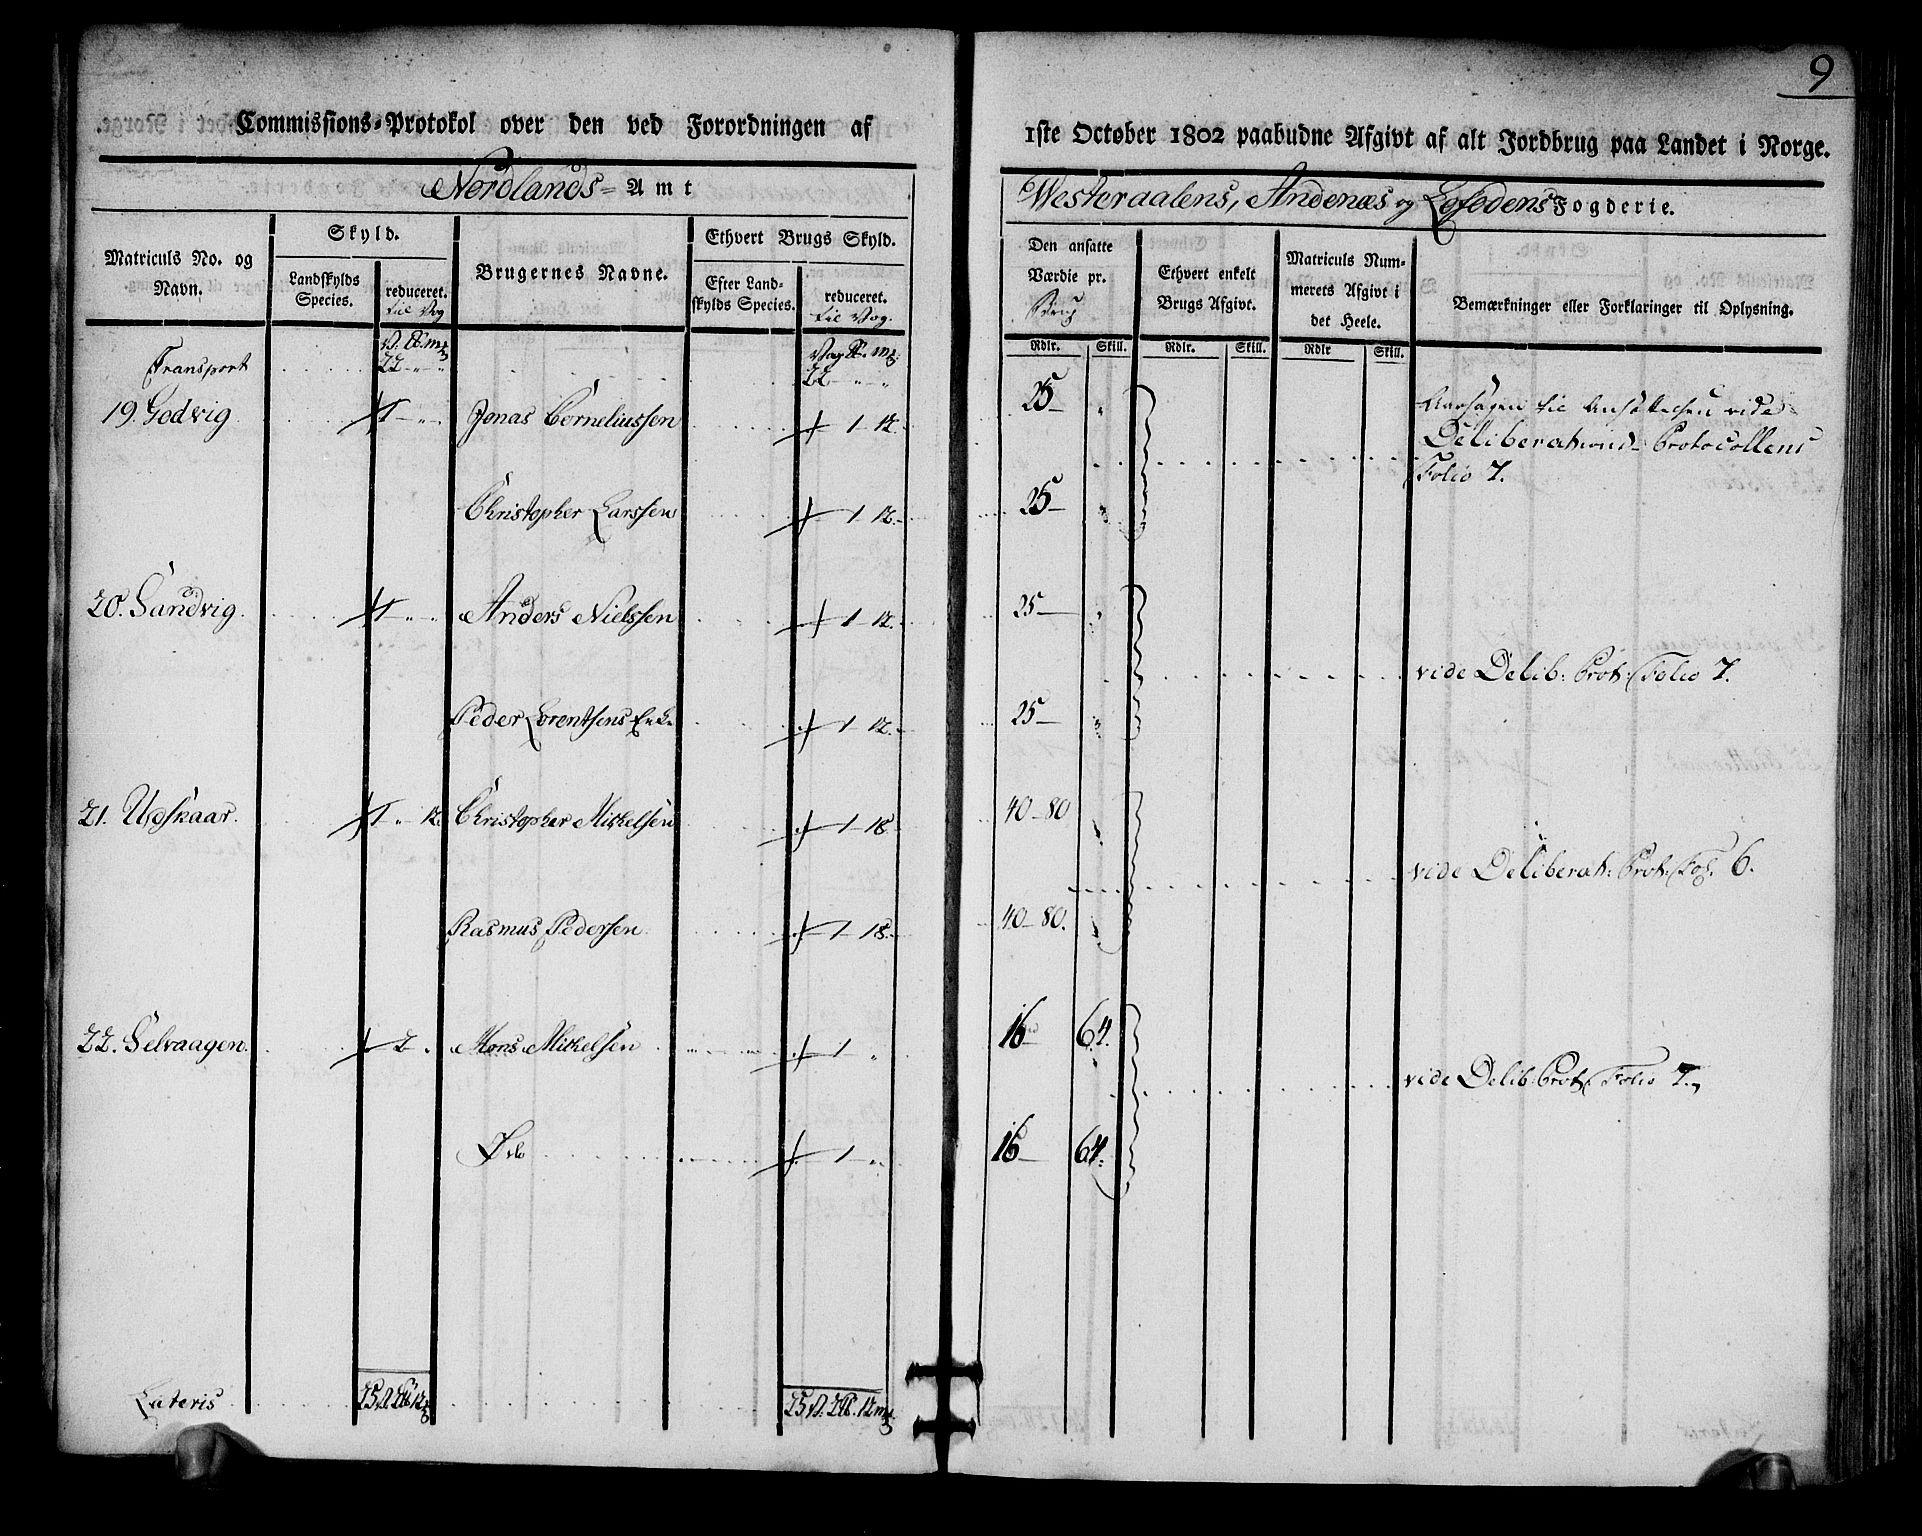 9
Commissions-Protokol over den ved Forordningen af
1ste October 1802 paabudne Afgivt af alt Jordbrug paa Landet i Norge.
Nordlands-Amt
Westeraalens, Andenæs og Lofodens Fogderie.
Matriculs No. og Navn.
Skyld.
Landskylds Species.
reduceret. til Vog
Brugernes Navne.
Ethvert Brugs Skyld.
Efter Landskylds Species.
reduceret. til Vog.
Den ansatte Værdie pr. Brug
Rdlr. Skill.
Ethvert enkelt Brugs Afgivt.
Rdlr. Skill.
Matriculs Nummerets Afgivt i det Heele.
Rdlr Skill.
Bemærkninger eller Forklaringer til Oplysning.
Transport 22 " " 22 " "
19. Godvig 1 " " Jonas Corneliussen 1 12. 25 "
Aarsagen til Ansættelsen vide
Deliberations Protocollens
Folio 7.
Christopher Larssen 1 12. 25 "
20. Sandvig 1 " " Anders Nielssen 1 12. 25 "
vide Delib: Prot: Folio 7.
Peder Lorentsens Enke 1 12. 25 "
21. Udskaar. 1 " 12. Christopher Mikelsen 1 18. 40 80
vide Deliberat: Prot: Fol. 6.
Rasmus Pedersen 1 18. 40 80.
22. Selvaagen. 2 " Mons Mikelsen 1 " 16 64.
vide Delib: Prot: Folio 7.
1 " 16 64.
Lateris 25 V. 2 12 25 V. 2 12 m